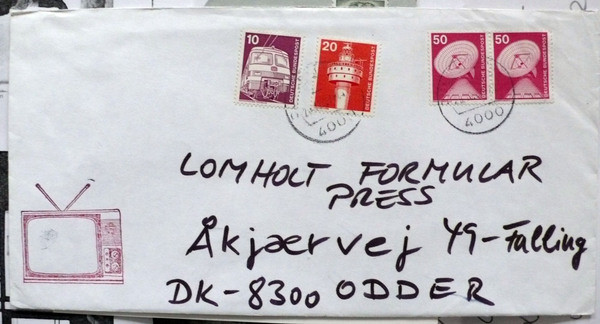 10
DEUTSCHE BUNDESPOST
20
DEUTSCHE BUNDESPOST
50
DEUTSCHE BUNDESPOST
50
DEUTSCHE BUNDESPOST
4000
4000
LOMHOLT FORMULAR
PRESS
Åkjærvej 49-Falling
DK-8300 ODDER